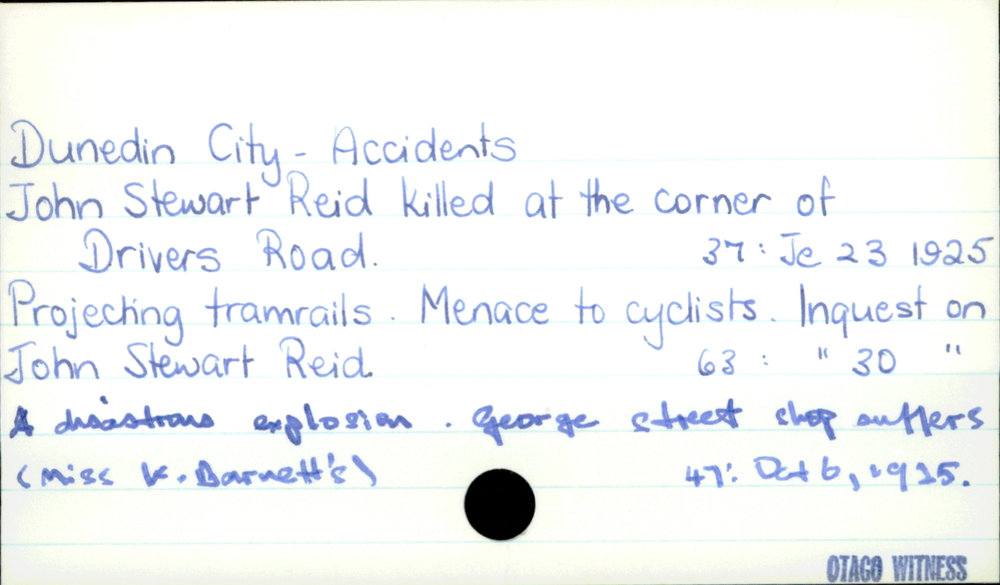 Dunedin City - Accidents
John Stewart Reid killed at the corner of
Drivers Road. 37 : Je 23 1925
Projecting tramrails. Menace to cyclists. Inquest on
John Stewart Reid. 63 : " 30 "
A disastrous explosion. George street shop suffers
(Miss K. Barnett's) 47: Oct 6, 1925.
OTAGO WITNESS